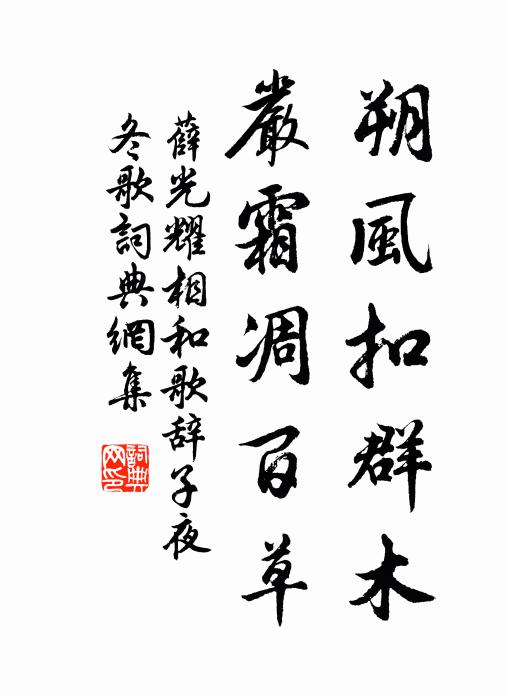 朔風扣群木
嚴霜凋百草
薛光耀相和歌辞子夜
冬歌詞典網集
詞典
网印